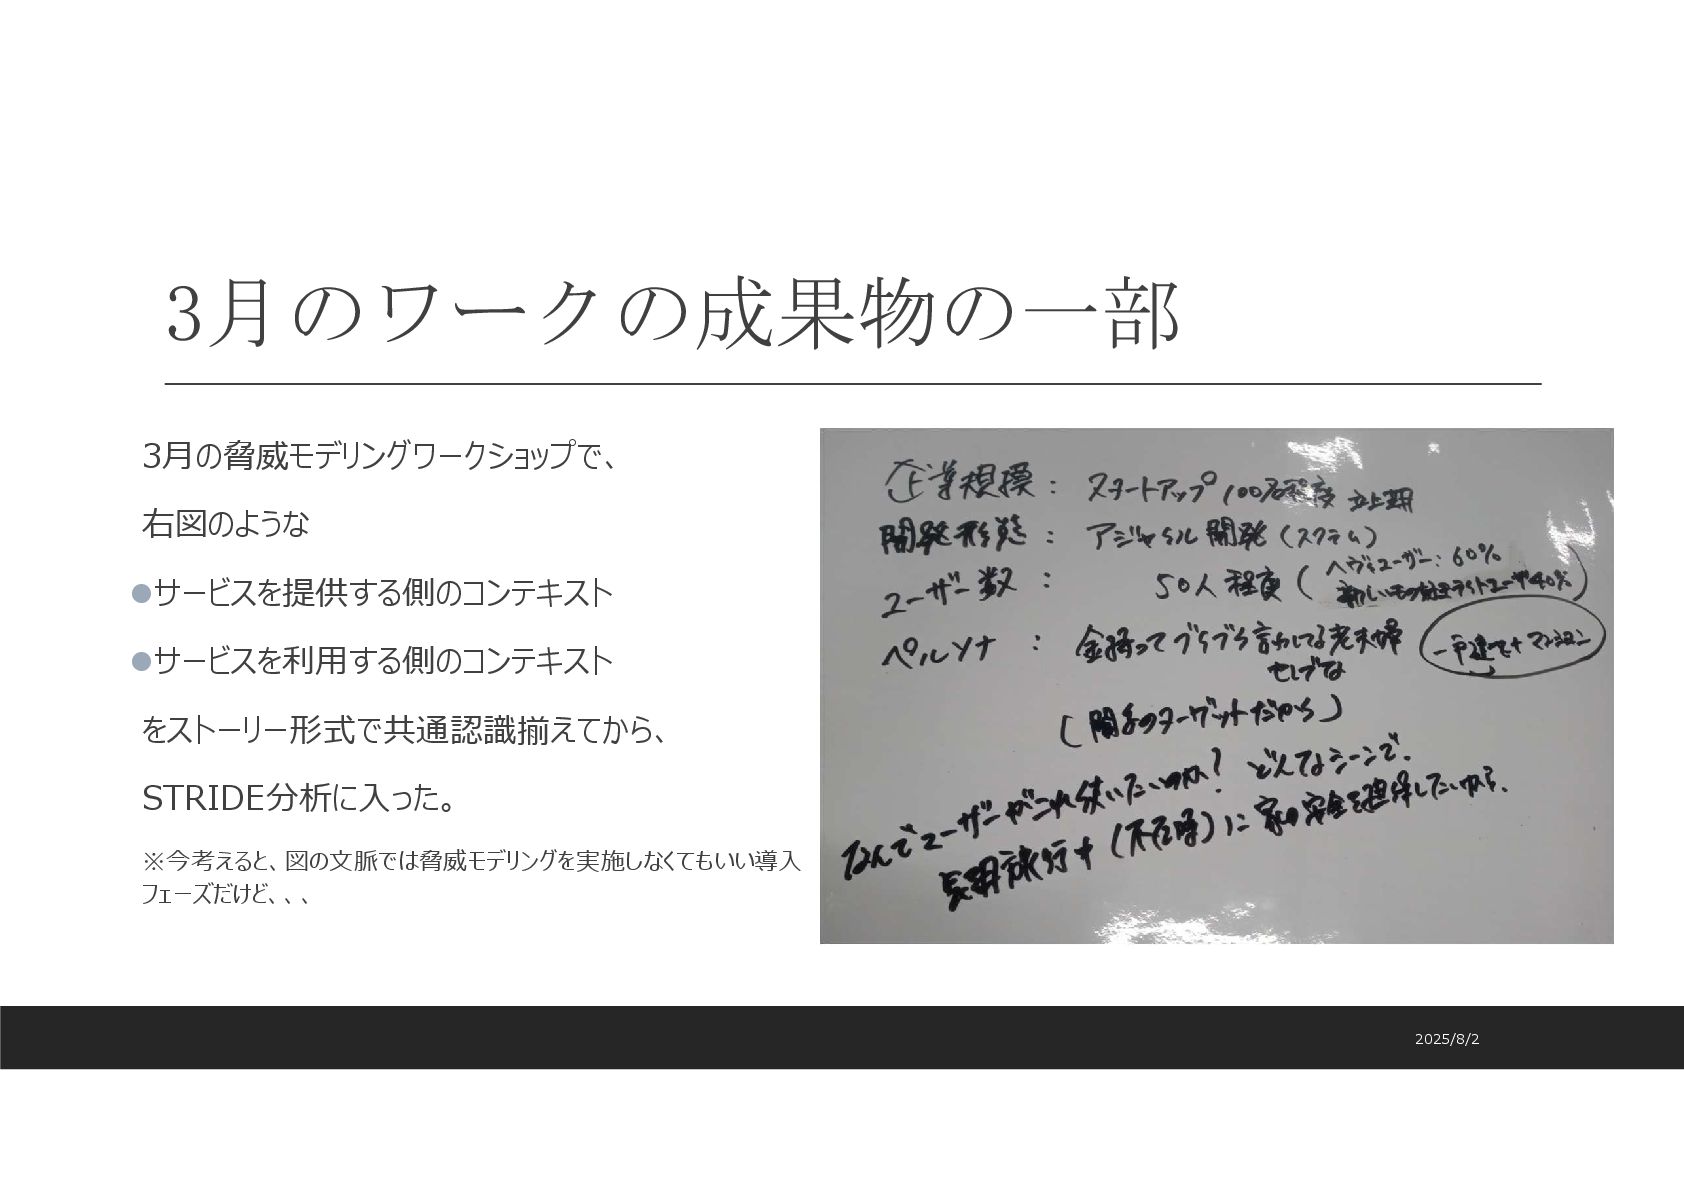 3月のワークの成果物の一部
3月の脅威モデリングワークショップで、
右図のような
●サービスを提供する側のコンテキスト
●サービスを利用する側のコンテキスト
をストーリー形式で共通認識揃えてから、
STRIDE分析に入った。
※今考えると、図の文脈では脅威モデリングを実施しなくてもいい導入
フェーズだけど、、、
企業規模 : スタートアップ 100名程度 立上期
開発形態 : アジャイル開発 (スクラム)
ユーザー数 : 50人程度 ( ヘヴィユーザー : 60%
新しいもの好きライトユーザ40% )
ペルソナ : 金持ってブラブラ言わしてる老夫婦 一戸建て+マンション
セレブな
(関係のターゲットだから)
なんでユーザーがこれ使いたいのか? どんなシーンで.
長期旅行+(不在時)に家の安全を担保したいから.
2025/8/2